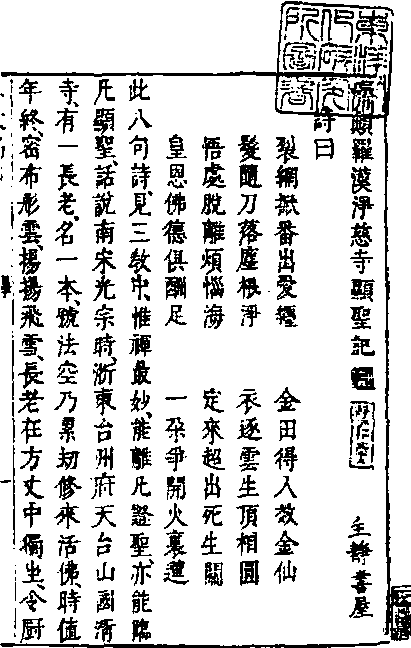 癲羅漢淨慈寺顯聖記
詩曰
裂網掀番出愛纏　金田得入效金仙
髮隨刀落塵根淨　衣逐雲生頂相圓
悟處脫離煩惱海　定來超出死生關
皇恩佛德俱酬足　一朶爭開火裏蓮
此八句詩、見三教中、惟禪最妙、能離凡證聖、亦能臨
凡顯聖、話說南宋光宗時、浙東台州府天台山國清
寺、有一長老、名一本、號法空、乃累劫修來活佛、時值
年終、密布彤雲、揚揚飛雪、長老在方丈中獨坐、令厨